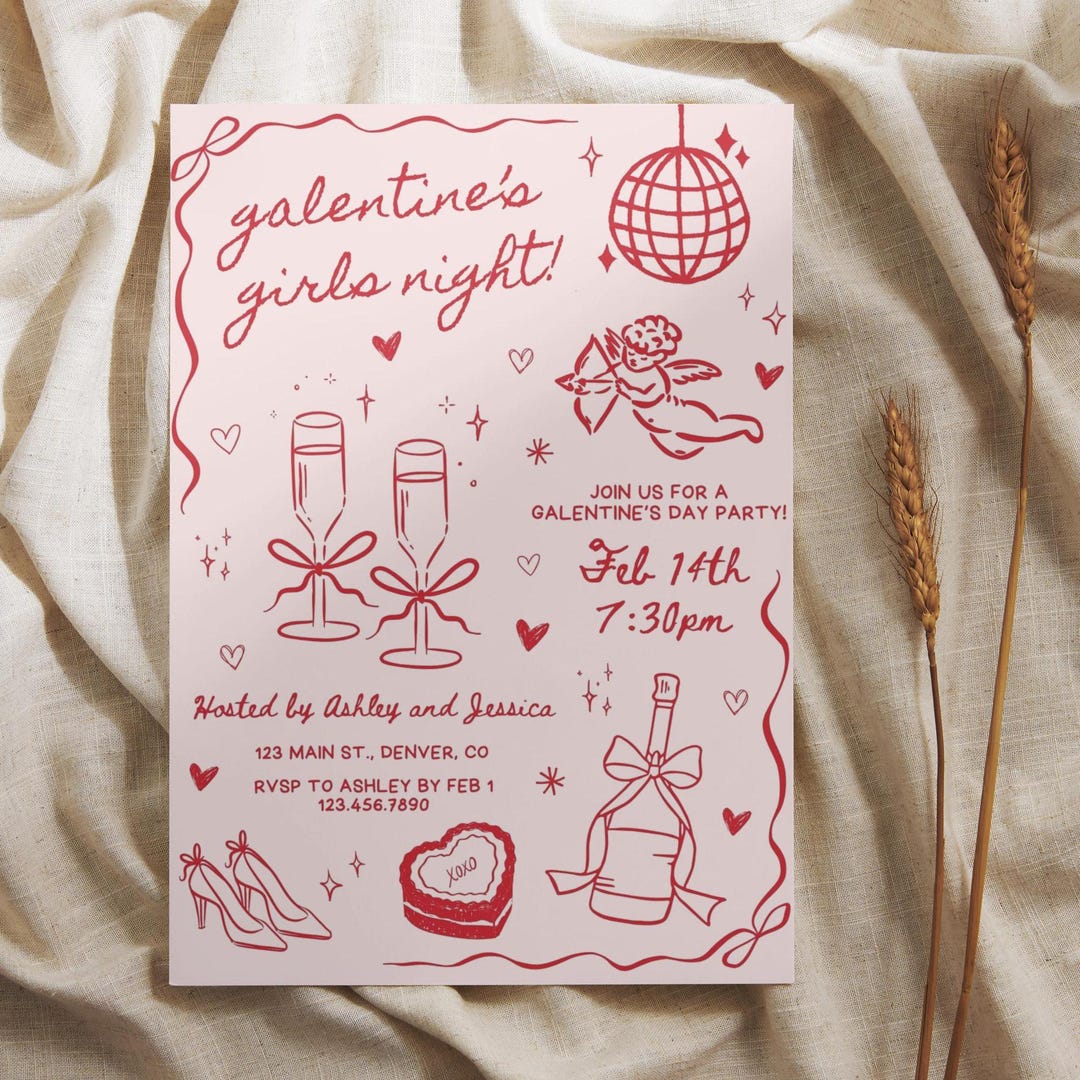 galentine's
girls night!
JOIN US FOR A
GALENTINE'S DAY PARTY!
Feb 14th
7:30pm
Hosted by Ashley and Jessica
123 MAIN ST., DENVER, CO
RVSP TO ASHLEY BY FEB 1
123.456.7890
xoxo